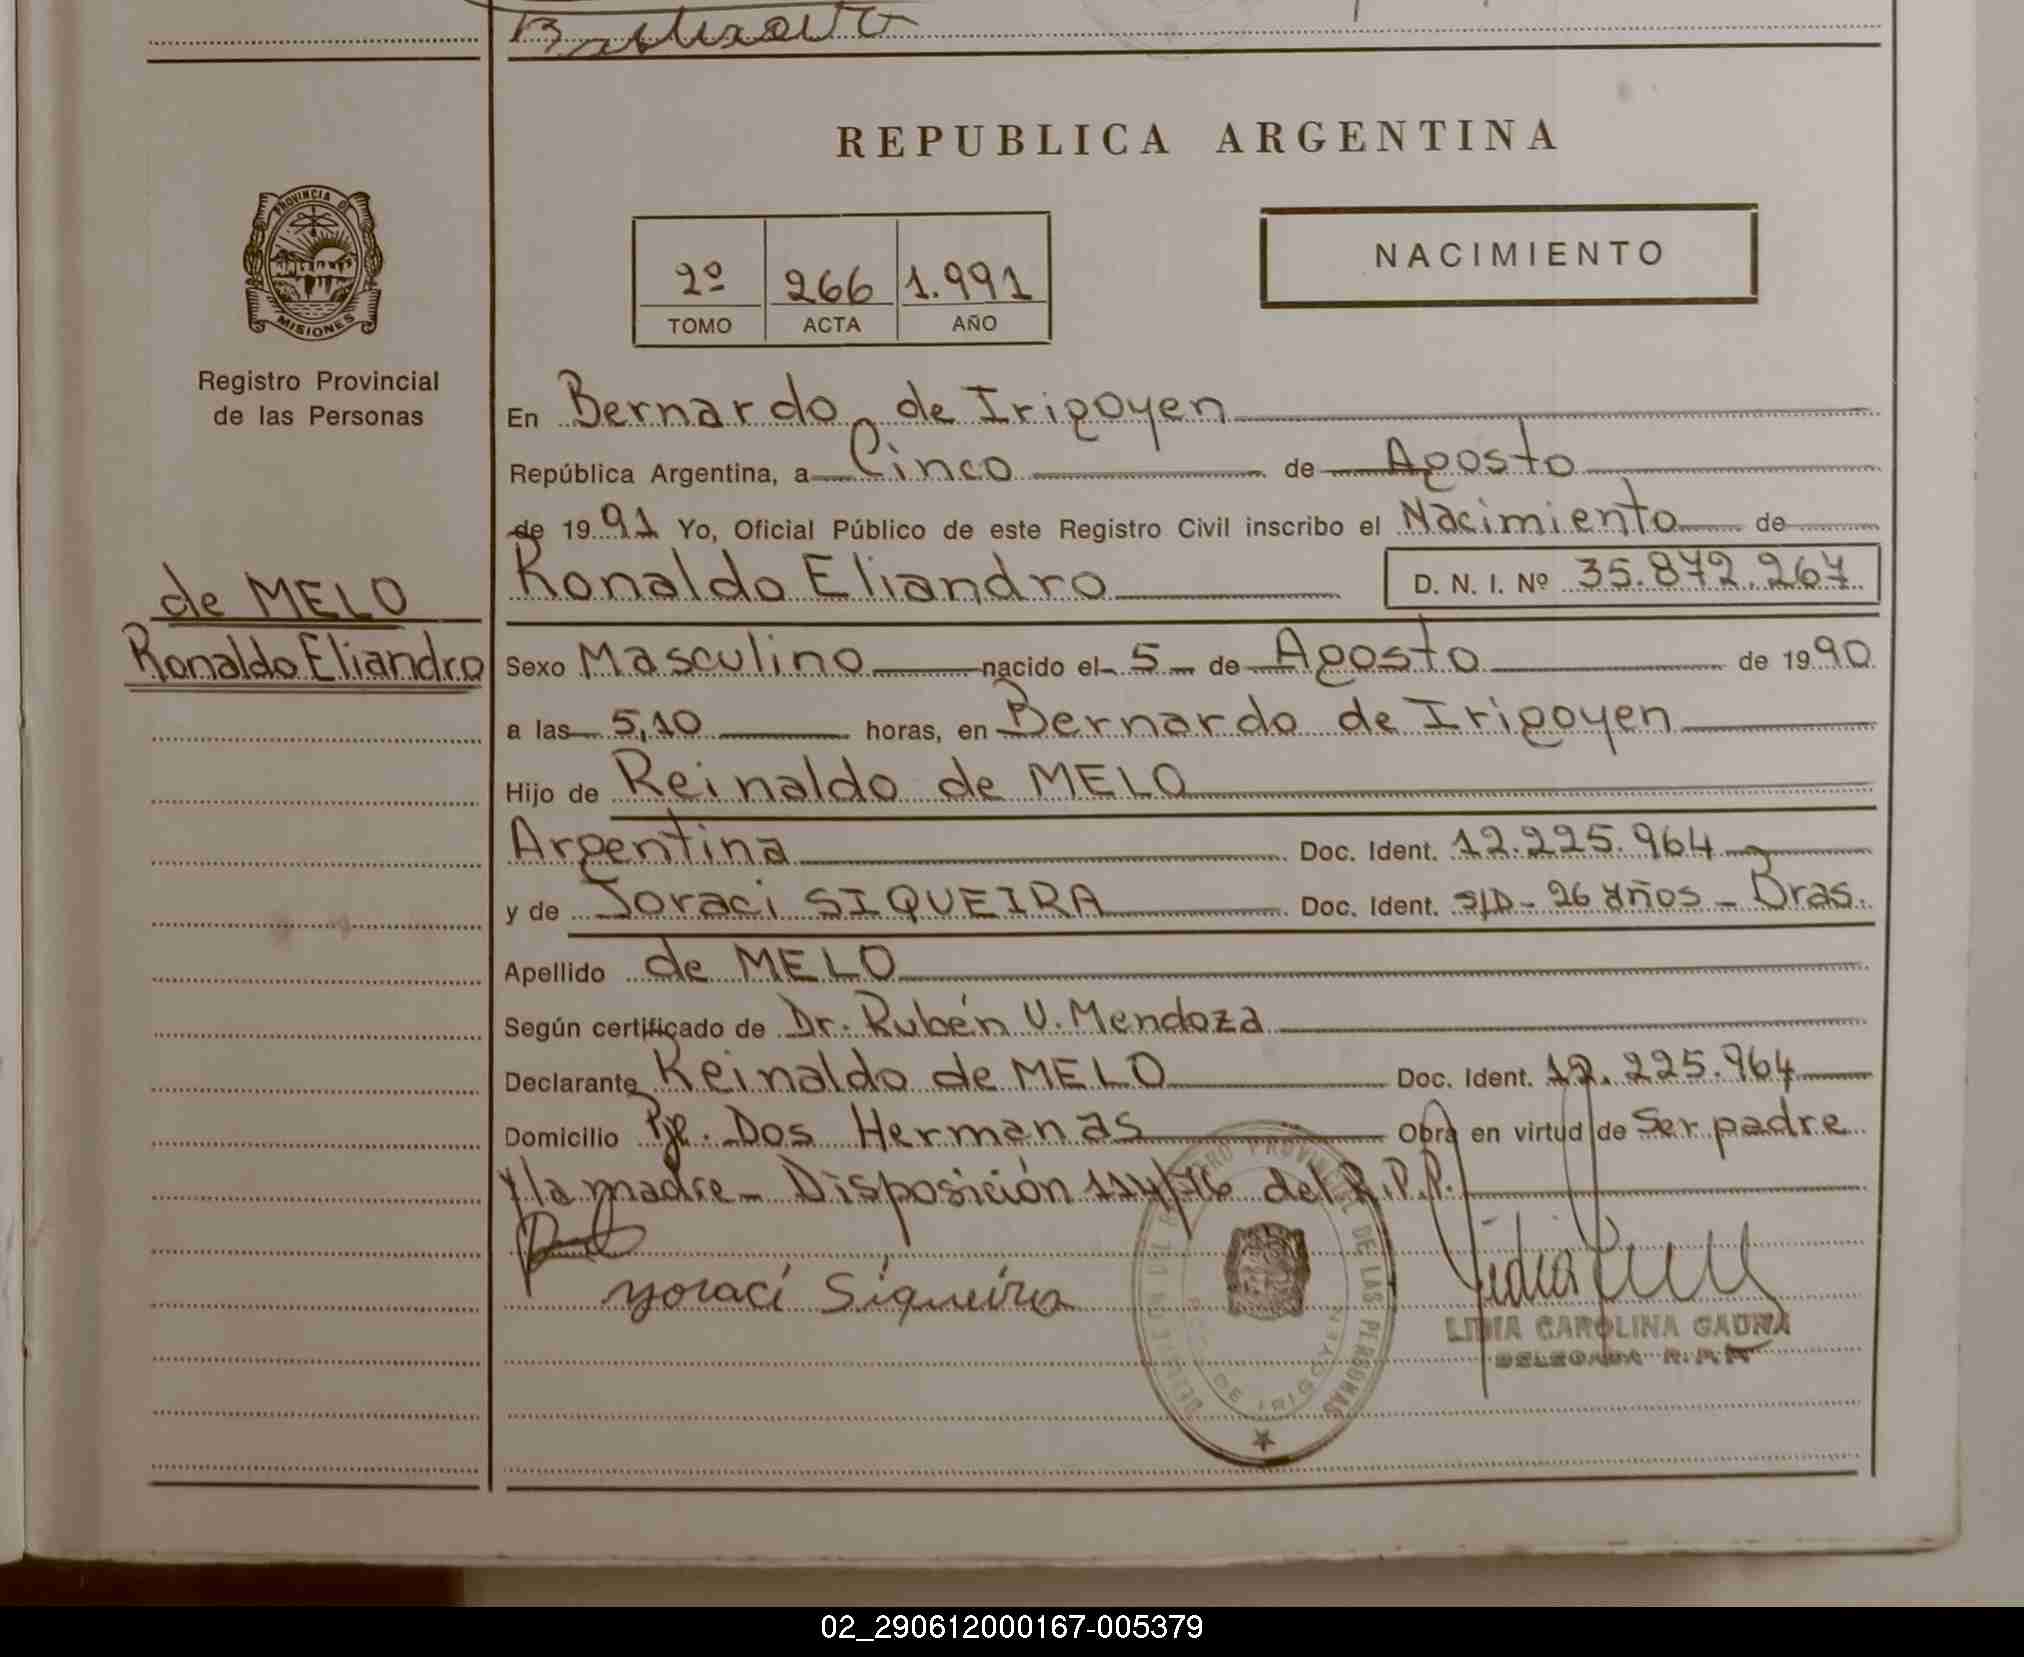 REPUBLICA ARGENTINA
PROVINCIA DE
MISIONES
Registro Provincial
de las Personas
2º 266 1.991
TOMO ACTA AÑO
NACIMIENTO
En Bernardo de Irigoyen
República Argentina, a Cinco de Agosto
de 1991 Yo, Oficial Público de este Registro Civil inscribo el Nacimiento de
Ronaldo Eliandro D. N. I. Nº 35.872.267
de MELO
Ronaldo Eliandro
Sexo Masculino nacido el 5 de Agosto de 1990
a las 5,10 horas, en Bernardo de Irigoyen
Hijo de Reinaldo de MELO
Argentina Doc. Ident. 12.225.964
y de Joraci SIQUEIRA Doc. Ident. S/D - 26 años - Bras.
Apellido de MELO
Según certificado de Dr. Rubén V. Mendoza
Declarante Reinaldo de MELO Doc. Ident. 12.225.964
Domicilio Pje. Dos Hermanas Obra en virtud de Ser padre
y la madre - Disposición 114/76 del R.P.P.
Yoraci Siqueira
REGISTRO PROVINCIAL DE LAS PERSONAS
DE IRIGOYEN
LIDIA CAROLINA GAUNA
DELEGADA R.P.P.
02_290612000167-005379